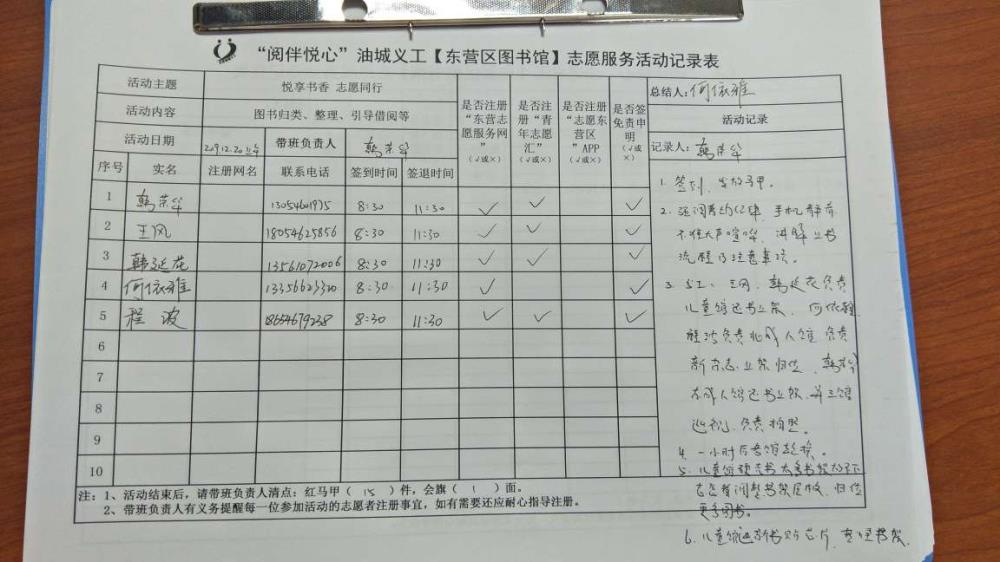 “阅伴悦心”油城义工【东营区图书馆】志愿服务活动记录表
活动主题 悦享书香 志愿同行
活动内容 图书归类、整理、引导借阅等
活动日期 带班负责人 韩荣华
是否注册“东营志愿服务网”(√或×)
是否注册“青年志愿汇”(√或×)
是否注册“志愿东营区”APP(√或×)
是否签免责申明(√或×)
总结人:何依雅
活动记录
记录人:韩荣华
序号 实名 注册网名 联系电话 签到时间 签退时间
1 韩荣华 8:30 11:30 √ √ √
2 王风 18054625856 8:30 11:30 √ √ √
3 韩延花 13561072006 8:30 11:30 √ √ √
4 何依雅 8:30 11:30 √ √
5 程波 8:30 11:30 √ √ √
6
7
8
9
10
1. 签到,发放马甲。
2. 强调着装纪律,手机静音
不准大声喧哗,讲解上书
流程及注意事项。
3. 王风、韩延花负责
儿童馆还书上架,何依雅
程波负责成人馆负责
新杂志上架归位,韩荣华
成人馆还书上架,并三馆
巡视,负责拍照。
4. 一小时后各馆轮换。
5. 儿童馆
调整书架层板,归位
更多图书。
6. 儿童馆芯片,整理书架。
注:1、活动结束后,请带班负责人清点:红马甲(15)件,会旗(1)面。
2、带班负责人有义务提醒每一位参加活动的志愿者注册事宜,如有需要还应耐心指导注册。